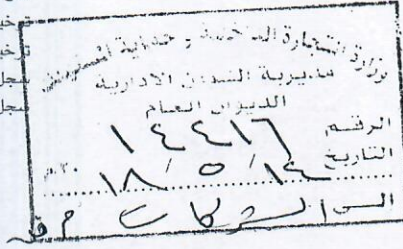 وزارة التجارة الداخلية و حماية المستهلك
مديرية الشؤون الادارية
الديوان العام
الرقم ١٤٤١٦
التاريخ ١٤ / ٥ / ١٨ ٢٠ م
الى الشركات
سجل
سجل